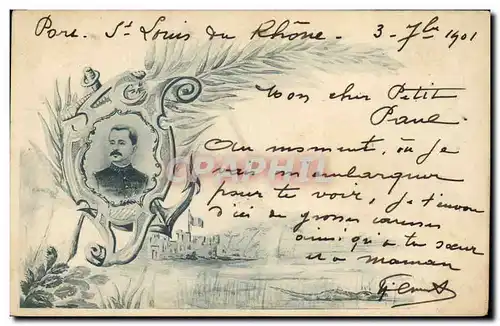 Port St Louis du Rhône - 3-7bre 1901
Mon cher Petit
Paul
Au moment, où je
vais m'embarquer
pour te voir, je t'envoie
d'ici de grosses caresses
ainsi qu'à ta sœur
et à maman
CPHRC